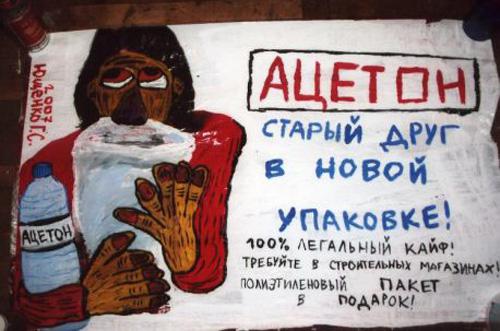 2007
ЮЩЕНКО Г.С.
АЦЕТОН
СТАРЫЙ ДРУГ
В НОВОЙ
УПАКОВКЕ!
100% ЛЕГАЛЬНЫЙ КАЙФ!
ТРЕБУЙТЕ В СТРОИТЕЛЬНЫХ МАГАЗИНАХ!
ПОЛИЭТИЛЕНОВЫЙ ПАКЕТ
В ПОДАРОК!
АЦЕТОН